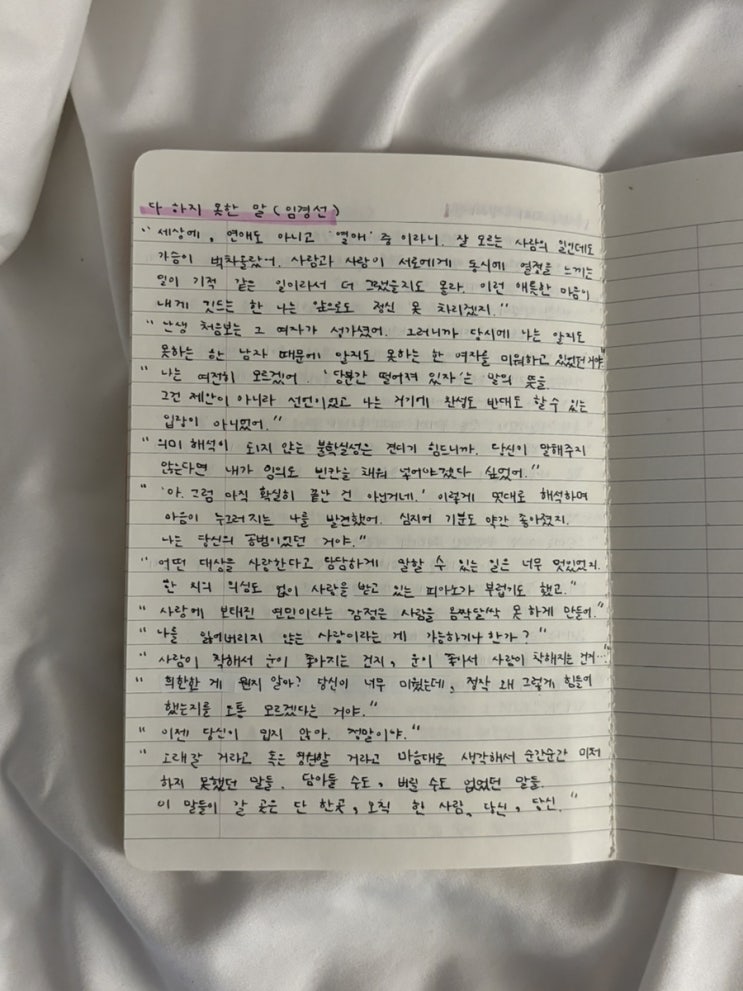 다 하지 못한 말 (임경선)
“세상에, 연애도 아니고 '열애' 중 이라니. 잘 모르는 사람의 일인데도
가슴이 벅차올랐어. 사람과 사람이 서로에게 동시에 열정을 느끼는
일이 기적 같은 일이라서 더 그랬을지도 몰라. 이런 애틋한 마음이
내게 깃드는 한 나는 앞으로도 정신 못 차리겠지.”
“난생 처음보는 그 여자가 성가셨어. 그러니까 당시에 나는 알지도
못하는 한 남자 때문에 알지도 못하는 한 여자를 미워하고 있었던 거야”
“나는 여전히 모르겠어. '당분간 떨어져 있자'는 말의 뜻을.
그건 제안이 아니라 선언이었고 나는 거기에 찬성도 반대도 할 수 있는
입장이 아니었어.”
“의미 해석이 되지 않는 불확실성은 견디기 힘드니까. 당신이 말해주지
않는다면 내가 임의로 빈칸을 채워 넣어야겠다 싶었어.”
“'아. 그럼 아직 확실히 끝난 건 아닌거네.' 이렇게 멋대로 해석하며
마음이 누그러지는 나를 발견했어. 심지어 기분도 약간 좋아졌지.
나는 당신의 공범이었던 거야.”
“어떤 대상을 사랑한다고 담담하게 말할 수 있는 일은 너무 멋있었지.
한 치의 의심도 없이 사랑을 받고 있는 피아노가 부럽기도 했고.”
“사랑에 보태진 연민이라는 감정은 사람을 옴짝달싹 못 하게 만들어.”
“나를 잃어버리지 않는 사랑이라는 게 가능하기나 한가?”
“사람이 착해서 운이 좋아지는 건지, 운이 좋아서 사람이 착해지는 건지…”
“희한한 게 뭔지 알아? 당신이 너무 미웠는데, 정작 왜 그렇게 힘들어
했는지를 도통 모르겠다는 거야.”
“이젠 당신이 밉지 않아. 정말이야.”
“오래갈 거라고 혹은 영원할 거라고 마음대로 생각해서 순간순간 미처
하지 못했던 말들. 담아둘 수도, 버릴 수도 없었던 말들.
이 말들이 갈 곳은 단 한곳, 오직 한 사람, 당신, 당신.”